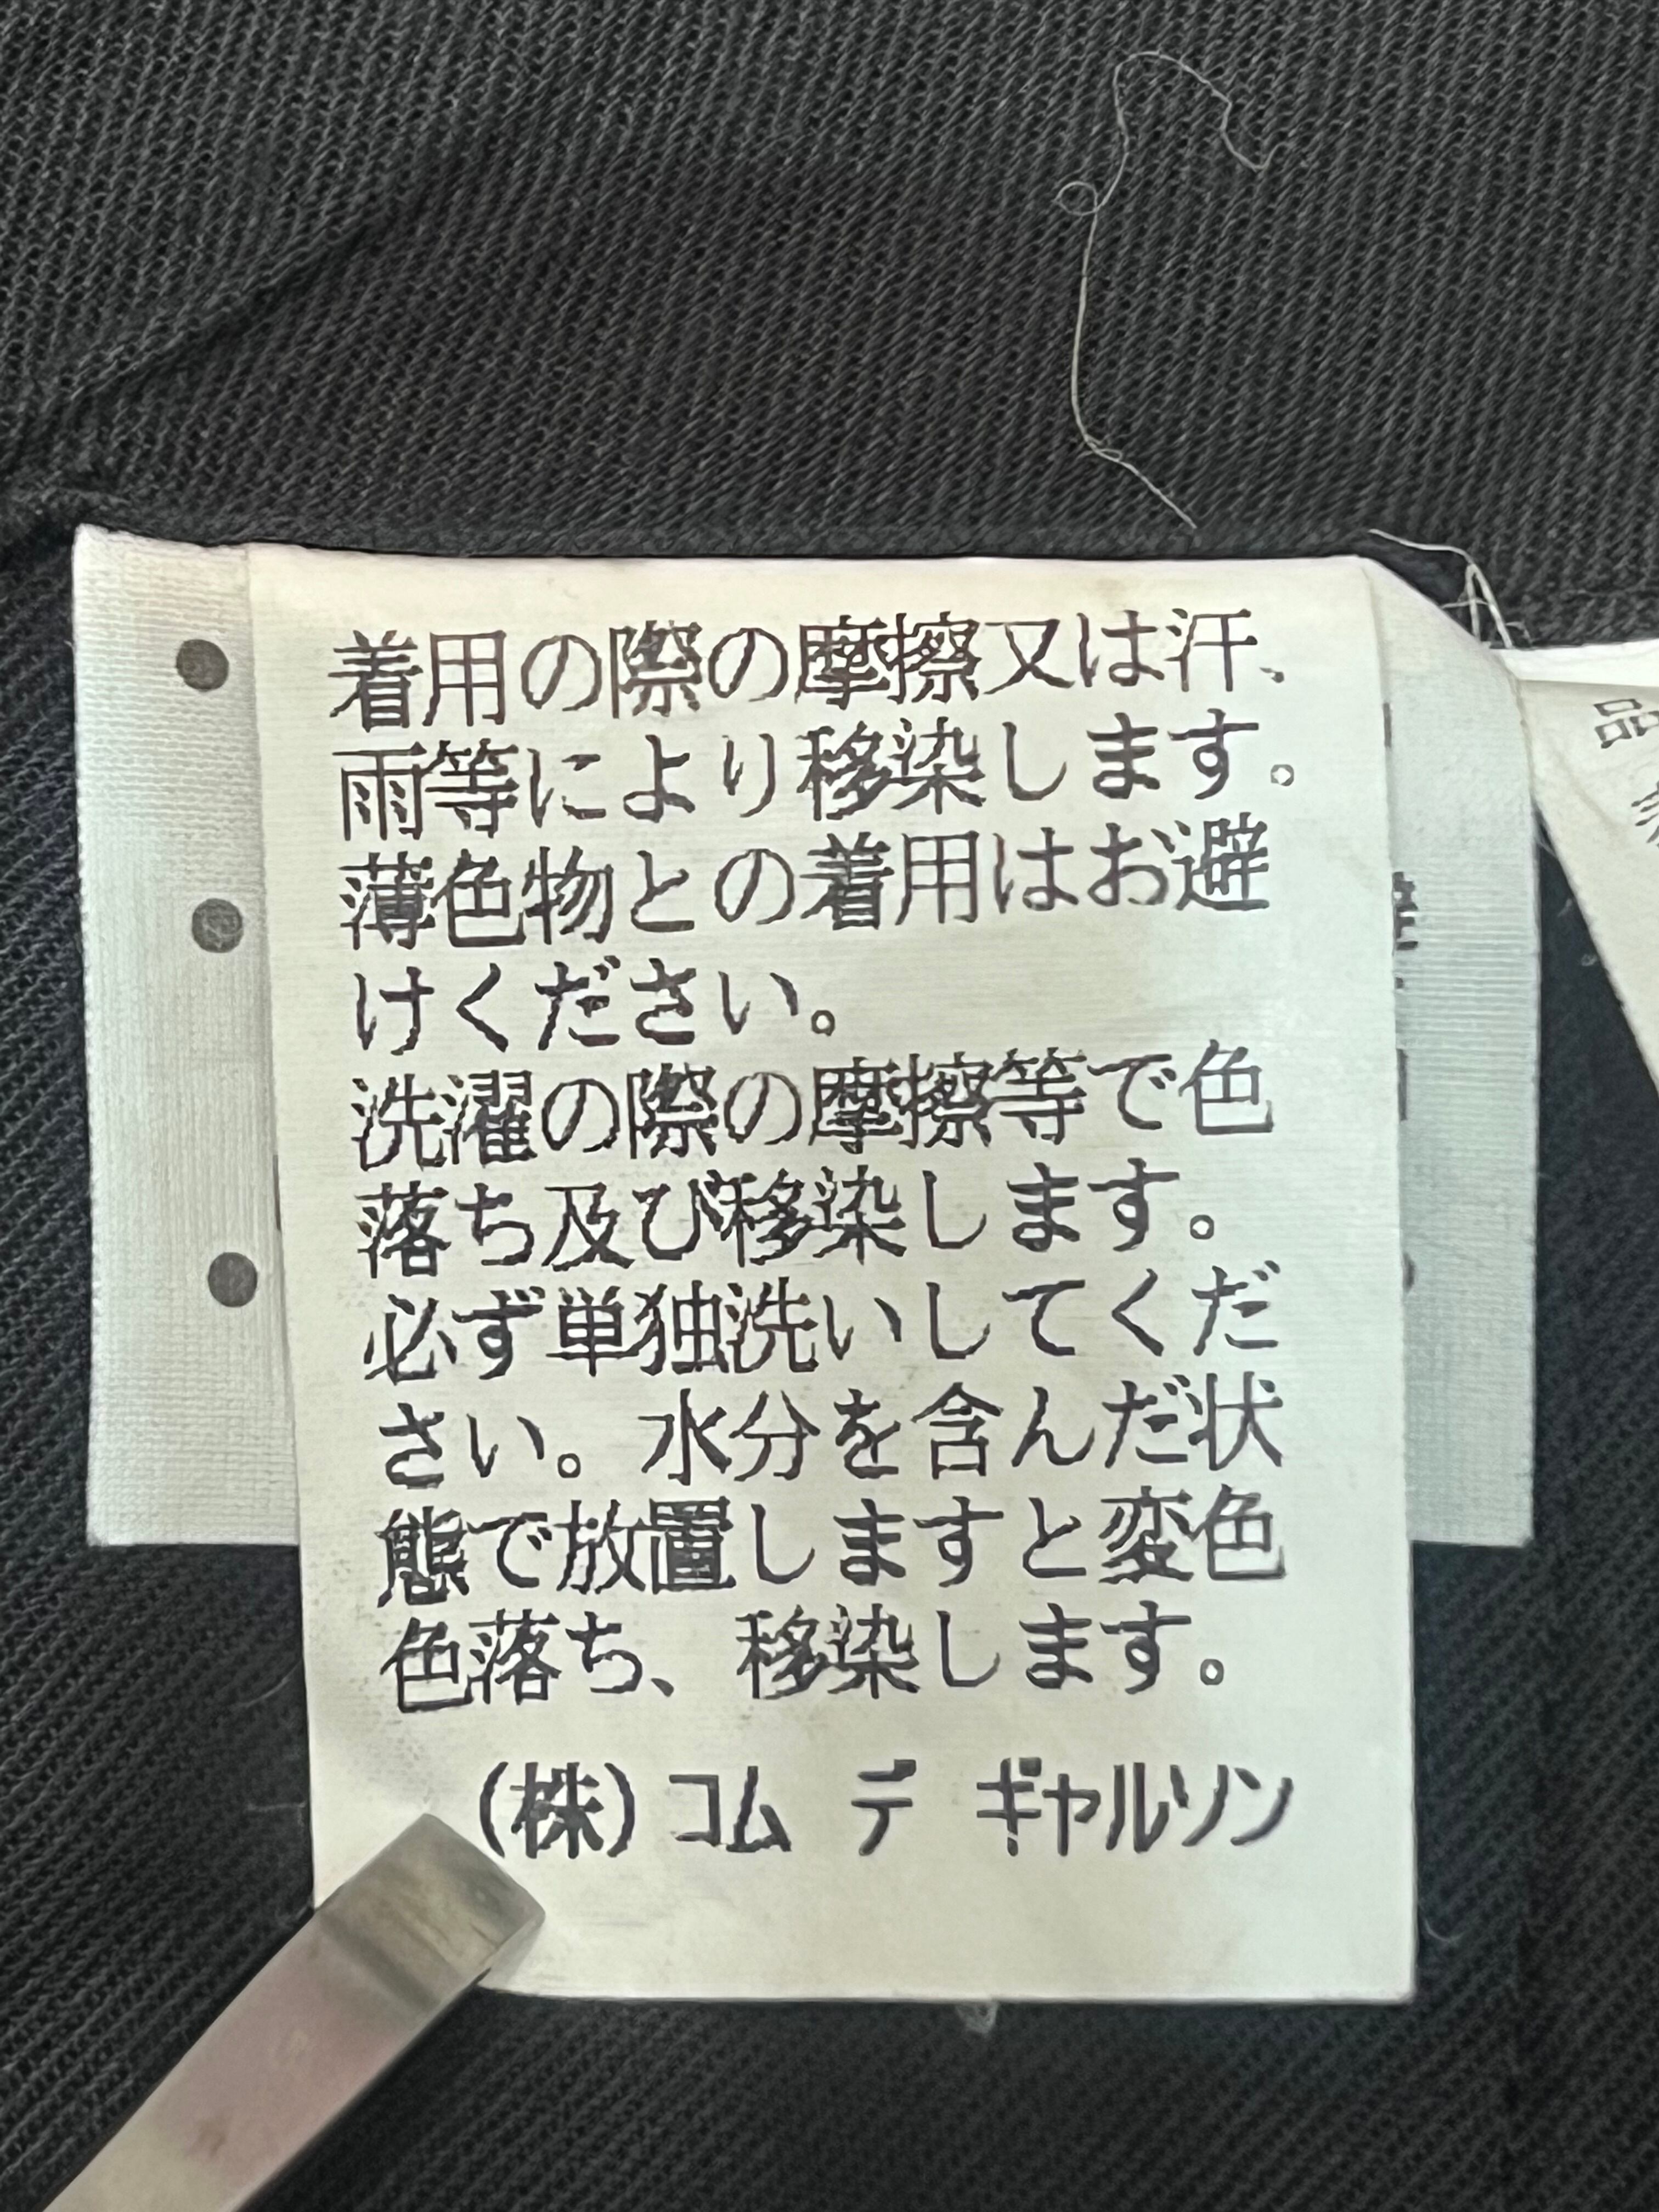 着用の際の摩擦又は汗、
雨等により移染します。
薄色物との着用はお避
けください。
洗濯の際の摩擦等で色
落ち及び移染します。
必ず単独洗いしてくだ
さい。水分を含んだ状
態で放置しますと変色
色落ち、移染します。
(株)コム デ ギャルソン
品